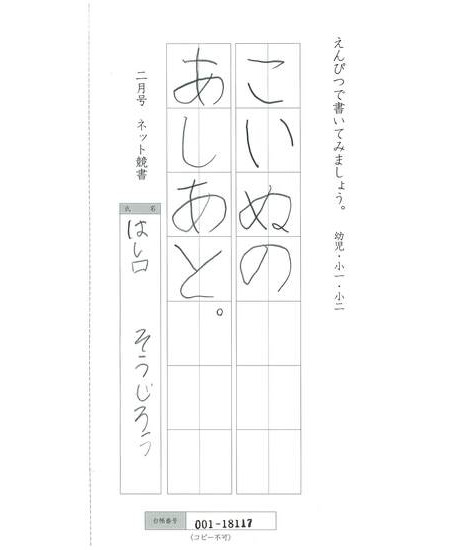 えんぴつで書いてみましょう。 幼児・小一・小二
こいぬの
あしあと。
二月号 ネット競書
氏名
はし口 そうじろう
台帳番号 001-18117
(コピー不可)